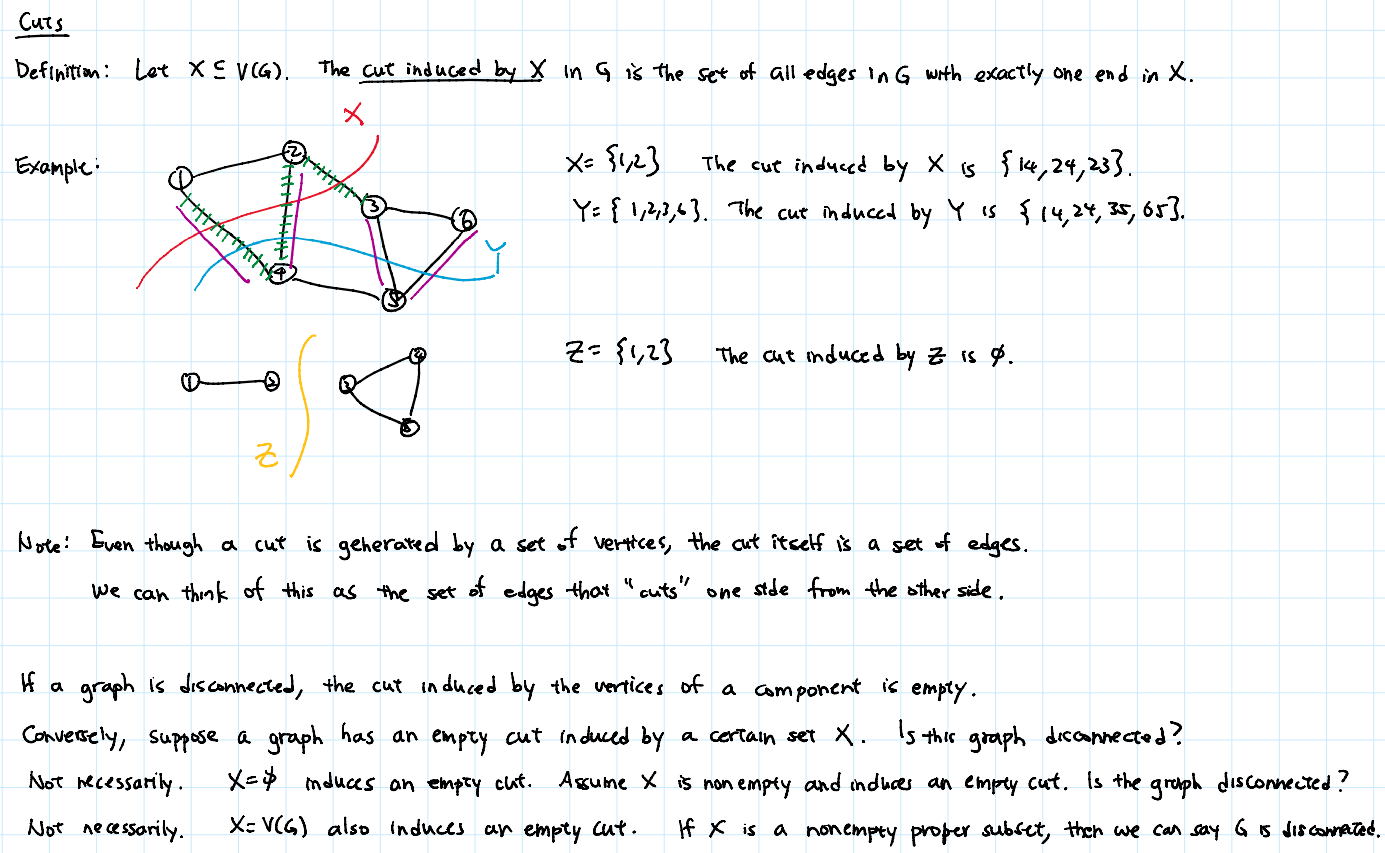 Cuts
Definition: Let X ⊆ V(G). The cut induced by X in G is the set of all edges in G with exactly one end in X.
X
Example:
1 2 3 6 4 5
Y
X = {1,2} The cut induced by X is {14,24,23}.
Y = {1,2,3,6}. The cut induced by Y is {14,24,35,65}.
1 2 3
Z
Z = {1,2} The cut induced by Z is ∅.
Note: Even though a cut is generated by a set of vertices, the cut itself is a set of edges.
We can think of this as the set of edges that "cuts" one side from the other side.
If a graph is disconnected, the cut induced by the vertices of a component is empty.
Conversely, suppose a graph has an empty cut induced by a certain set X. Is this graph disconnected?
Not necessarily. X=∅ induces an empty cut. Assume X is nonempty and induces an empty cut. Is the graph disconnected?
Not necessarily. X=V(G) also induces an empty cut. If X is a nonempty proper subset, then we can say G is disconnected.